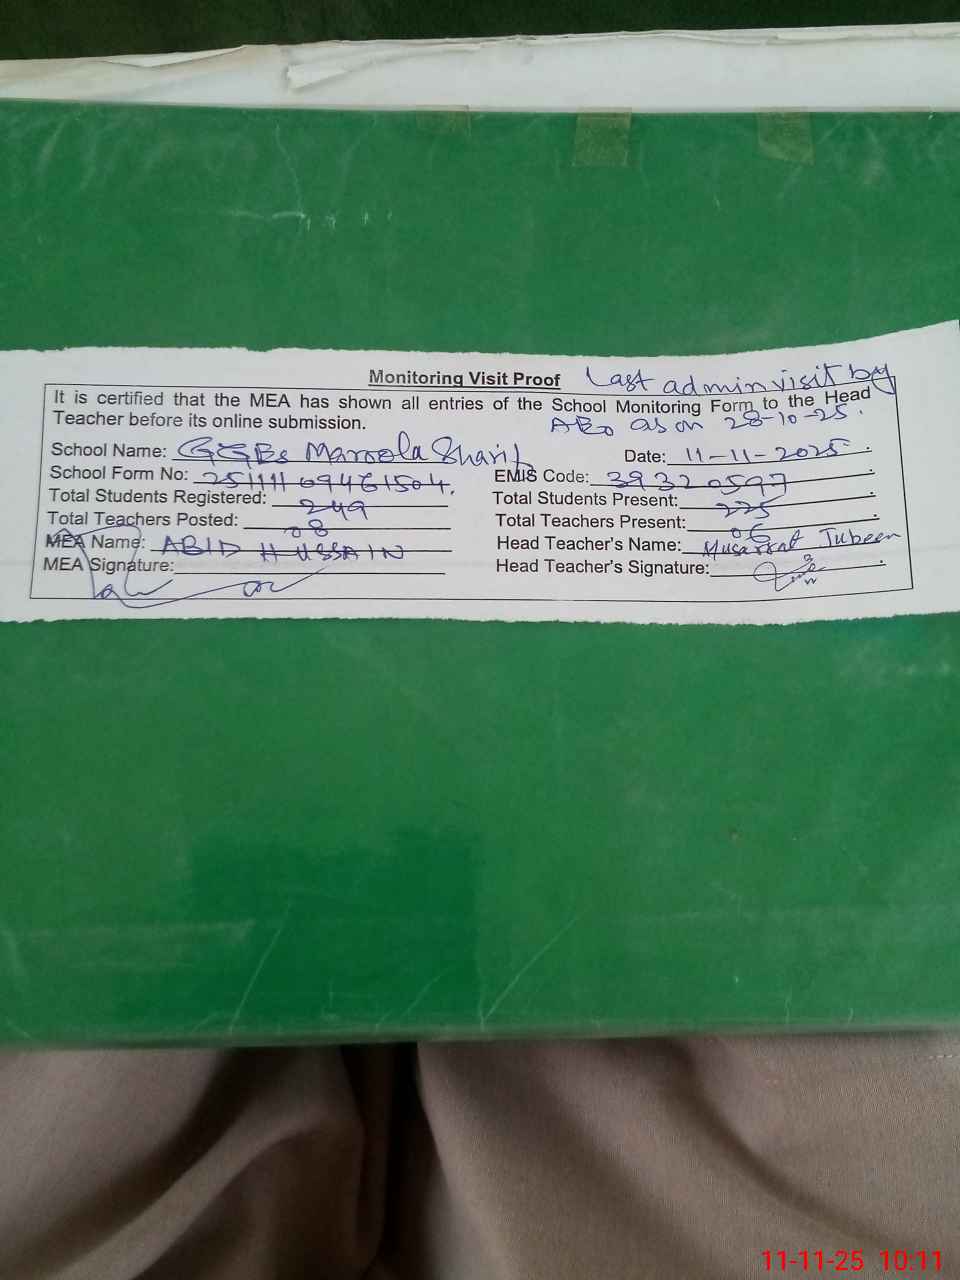 Monitoring Visit Proof Last admin visit by
It is certified that the MEA has shown all entries of the School Monitoring Form to the Head
Teacher before its online submission. AEO as on 28-10-25.
School Name: GGES Maroola Sharif Date: 11-11-2025
School Form No: EMIS Code: 39320597
Total Students Registered: 249 Total Students Present: 225
Total Teachers Posted: 08 Total Teachers Present: 06
MEA Name: ABID HUSSAIN Head Teacher's Name: Musarrat Jubeen
MEA Signature: Head Teacher's Signature:
11-11-25 10:11